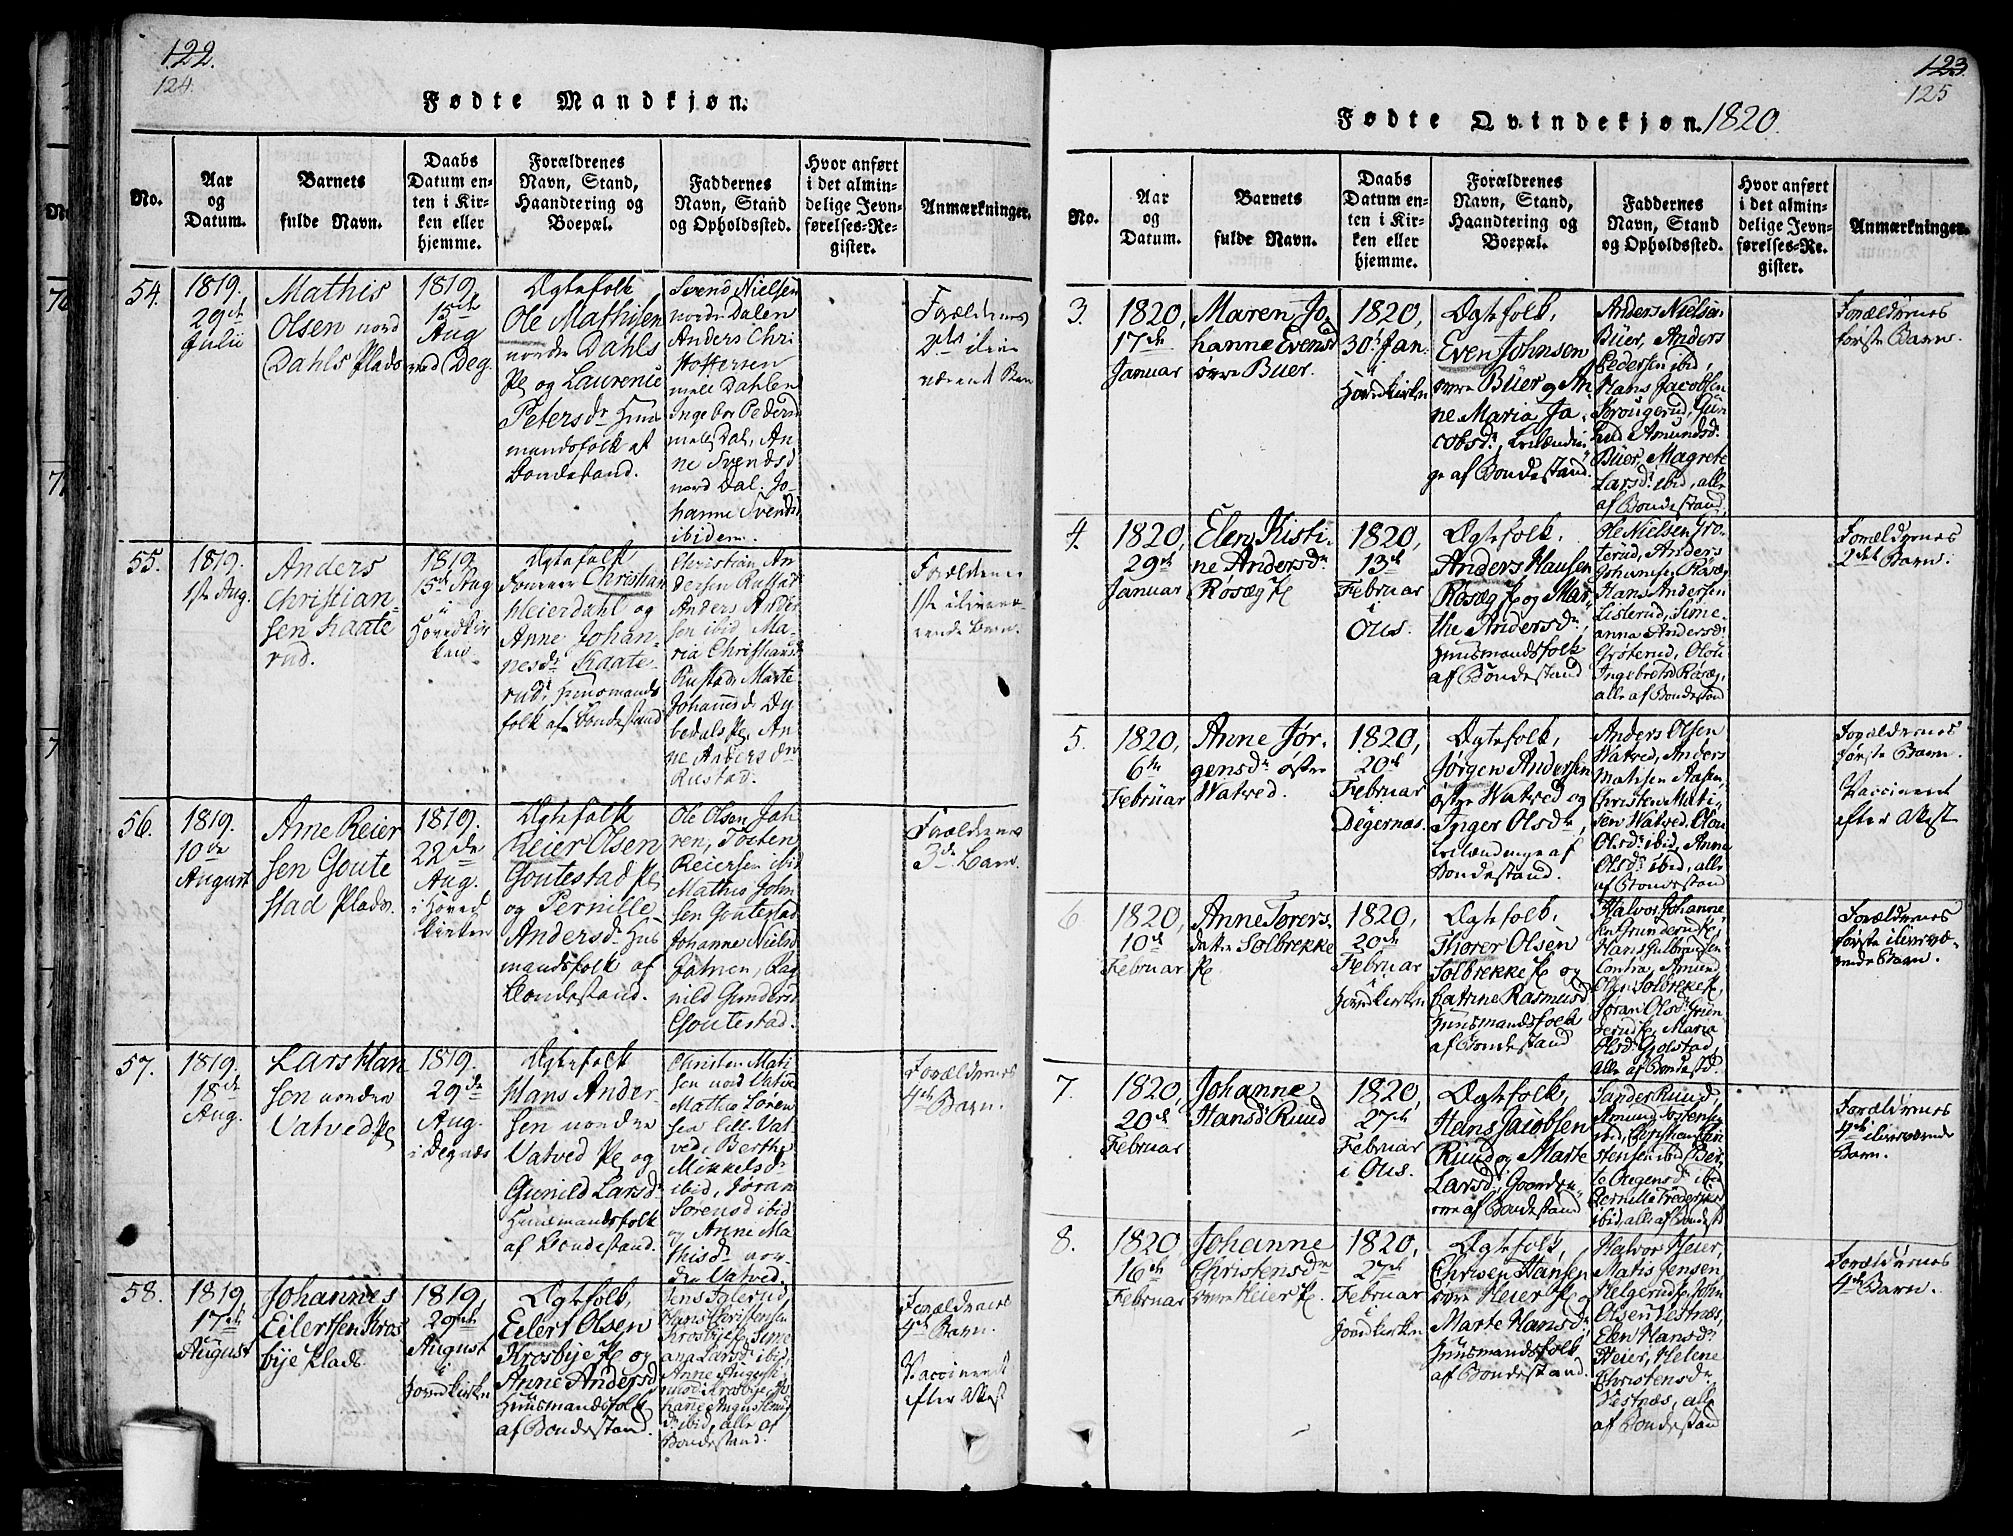 122.
124.
Fødte Mandkjøn.
No.
Aar
og
Datum.
Barnets
fulde Navn.
Daabs
Datum en-
ten i Kir-
ken eller
hjemme.
Forældrenes
Navn, Stand,
Haandtering og
Boepæl.
Faddernes
Navn, Stand
og Opholdssted.
Hvor anført
i det almin-
delige Jevn-
førelses-Re-
gister.
Anmærkninger.
54.
1819.
29de
Julii
Mathis
Olsen nord
Dahls Plads
1819
15de
Aug
ved Deg.
Ægtefolk
Ole Mathisen
nordre Dahls
Pl og Laurence
Petersdr Huus
mandsfolk af
Bondestand.
Svend Nielsen
nordre Dalen
Anders Chri
stoffersen
mell Dahlen
Ingebor Peders
mell Dal, An
ne Svendsd
nord Dal. Jo-
hanne Svendsd
ibidem.
Forældrenes
2det ilive
værende Barn
55.
1819.
1ste Aug.
Anders
Christian-
sen Kaate
rud.
1819
15de Aug
i
Hovedkir
ken
Ægtefolk
Christian
Meierdahl og
Anne Johan-
nesdr Kaate-
rud, Huusmands
folk af Bondestand
Christian An
dersen Rustad
Anders Ander
sen ibid, Ma-
ria Christiansd
Rustad, Marte
Johannesd Dy
bedals Pl, An
ne Andersdr
Rustad.
Forældrenes
1ste ilivevæ-
rende Barn.
56.
1819.
10de
August
Arne Reier
sen Goute
stad Plads.
1819.
22de
Aug.
i Hoved
kirken
Ægtefolk
Reier Olsen
Goutestad Pl
og Pernille
Andersdr Huus
mandsfolk af
Bondestand.
Ole Olsen Jah
ren, Torsten
Reiersen ibid
Mathis John
sen Goutestad
Johanne Nielsd
Jahren, Rag
nild Gundersd
Goutestad.
Forældrenes
3de Barn.
57.
1819.
18de
Aug.
Lars Han
sen nordre
Vatved Pl
1819.
29de
Aug.
i Degnæs
Ægtefolk
Hans Ander
sen nordre
Vatved Pl og
Gunild Larsd
Huusmandsfolk
af Bondestand.
Christen Mati
sen nord Vatve
Mathis Søren
sen lille Vat
ved, Berthe
Mikkelsdr
ibid, Jøran
Sørensd ibid
og Anne Ma
thisdr nor
dre Vatved.
Forældrenes
4de Barn.
58.
1819
17de
August
Johannes
Eilertsen Kros
bye Plads.
1819,
29de
August
i
Hovedkirken
Ægtefolk,
Eilert Olsen
Krosbye Pl og
Anne Andersd
Huusmandsfolk
af Bondestand.
Jens Iglerud,
Hans Christensen
Krosbye Pl, Sime
ana Larsd ibid,
ibid, alle af
Bondestand.
Forældrenes
4de Barn.
Vaccineret
efter Attest
123.
125
Fødte Qvindekjøn. 1820.
No.
Aar
og
Datum.
Barnets
fulde Navn.
Daabs
Datum en-
ten i Kir-
ken eller
hjemme.
Forældrenes
Navn, Stand,
Haandtering og
Boepæl.
Faddernes
Navn, Stand
og Opholdssted.
Hvor anført
i det almin-
delige Jevn-
førelses-Re-
gister.
Anmærkninger.
3.
1820,
17de
Januar
Maren Jo-
hanne Evensd
øvre Büer.
1820,
30te Jan.
i
Hovedkirken
Ægtefolk,
Even Johnsen
øvre Büer og An
ne Maria Ja-
cobsdr, Leilændin-
ge af Bondestand.
Anders Nielsen
Büer, Anders
Pedersen ibid,
Hans Jacobsen
Krougerud, Gun-
hild Amundsdr
Büer, Magrete
Larsdr ibid, alle
af Bondestand.
Forældrenes
første Barn.
4.
1820,
29de
Januar
Elen Kisti-
ne Andersdr
Røsæg Pl
1820,
13de
Februar
i
Ous.
Ægtefolk.
Anders Hansen
Røsæg Pl og Mar-
the Andersdr,
Huusmandsfolk
af Bondestand
Ole Nielsen Grø-
terud, Anders
Johannesen Røsæg
Hans Andersen
Listerud, Sime-
anna Andersdr
Grøterud, Olou
Ingebretsd Røsæg,
alle af Bondestand
Forældrenes
2det Barn.
5.
1820,
6te
Februar
Anne Jør-
gensdr østre
Watved.
1820,
20de
Februar
i
Degernæs.
Ægtefolk,
Jørgen Andersen
østre Watved og
Inger Olsdr,
Leilændinge af
Bondestand.
Anders Olsen
Watved, Anders
Matisen Aasen,
Christen Mati-
sen Watved, Olou
Olsdr ibid, Anne
Olsdr ibid, alle
af Bondestand
Forældrenes
første Barn.
Vaccineret
efter Attest
6.
1820,
10de
Februar
Anne Torers-
datter Solbrekke
Pl
1820,
20de
Februar
i
Hovedkirken
Ægtefolk.
Thorer Olsen
Solbrekke Pl og
Catrine Rasmusd
Huusmandsfolk
af Bondestand
Halvor Johanne-
sen Grunderud Pl,
Hans Gulbrandsen
Contra, Amund
Olsen Solbrekke Pl,
Jøran Olsdr Grün
derud Pl, Maria
Olsdr Golstad,
alle af Bondestd.
Forældrenes
første ilivevæ-
rende Barn.
7.
1820,
20de
Februar
Johanne
Hansdr Ruud
1820,
27de
Februar
i Ous.
Ægtefolk,
Hans Jacobsen
Ruud og Marte
Larsdr, Gaardbru-
gere af Bondestand
Sander Ruud,
Amund Torstensen
ibid, Christian Chri
stensen ibid, Ber-
te Aagensdr ibid
Pernille Frederiksd
ibid, alle af Bondest
Forældrenes
4de ilivevæ­rende
Barn.
8.
1820,
16de
Februar
Johanne
Christensdr
øvre Heier Pl.
1820,
27de
Februar
i
Hovedkirken
Ægtefolk,
Christen Hansen
øvre Heier Pl og
Marte Hansdr,
Huusmandsfolk
af Bondestand.
Halvor Heier,
Matis Jensen
Helgerud Pl, John
Olsen Vestnæs,
Elen Hansdr
Heier, Helene
Christensdr
Vestnæs, alle
af Bondestand
Forældrenes
4de Barn.